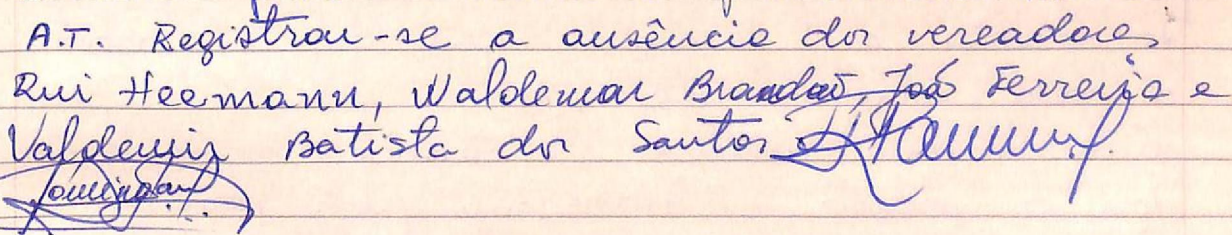 A.T. Registrou-se a ausência dos vereadores
Rui Heemann, Waldemar Brandão, João Ferreira e
Valdemir Batista dos Santos